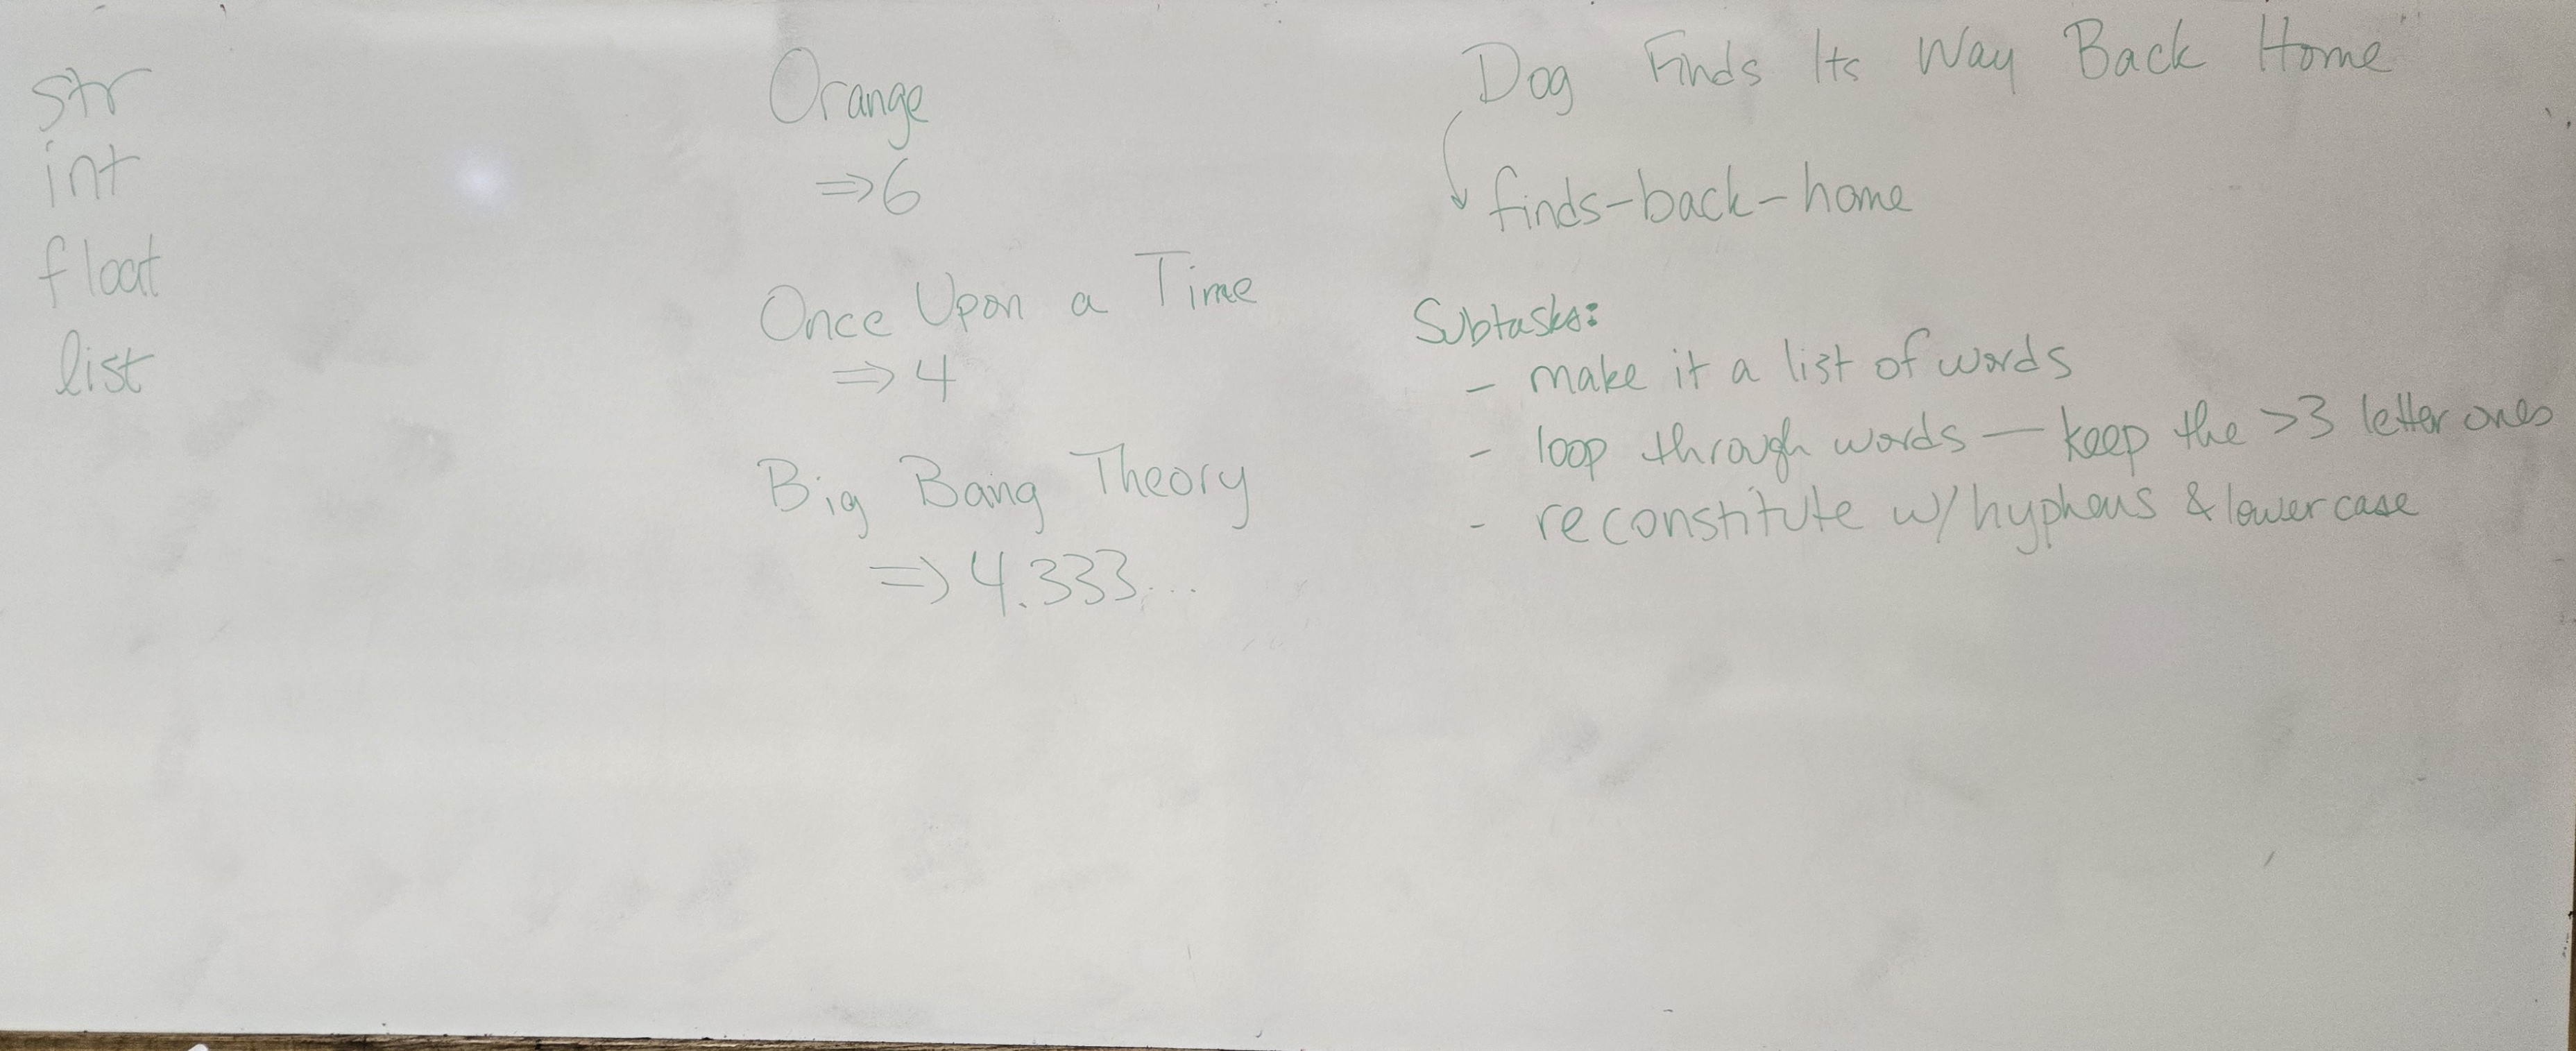 str
int
float
list
Orange
⇒6
Once Upon a Time
⇒4
Big Bang Theory
⇒4.333...
Dog Finds Its Way Back Home
finds-back-home
Subtasks:
- make it a list of words
- loop through words — keep the >3 letter ones
- reconstitute w/ hyphens & lowercase